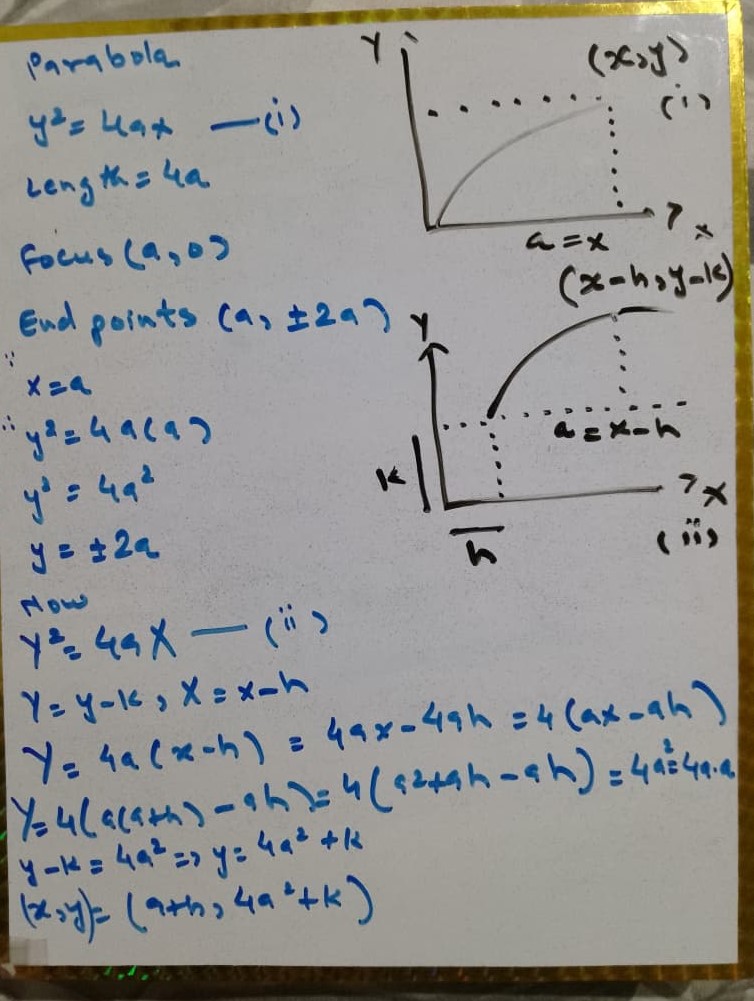 Parabola
y² = 4ax — (i)
Length = 4a
Focus (a, 0)
End points (a, ±2a)
∵
x = a
∴ y² = 4a(a)
y² = 4a²
y = ±2a
Now
Y² = 4aX — (ii)
Y = y-k, X = x-h
Y = 4a(x-h) = 4ax - 4ah = 4(ax-ah)
Y = 4(a(a+h) - ah) = 4(a2+ah-ah) = 4a² = 4a.a
y-k = 4a² => y = 4a² + k
(x, y) = (a+h, 4a²+k)
Y
(x, y)
(i)
x
a = x
(x-h, y-k)
Y
a = x-h
K
X
h
(ii)